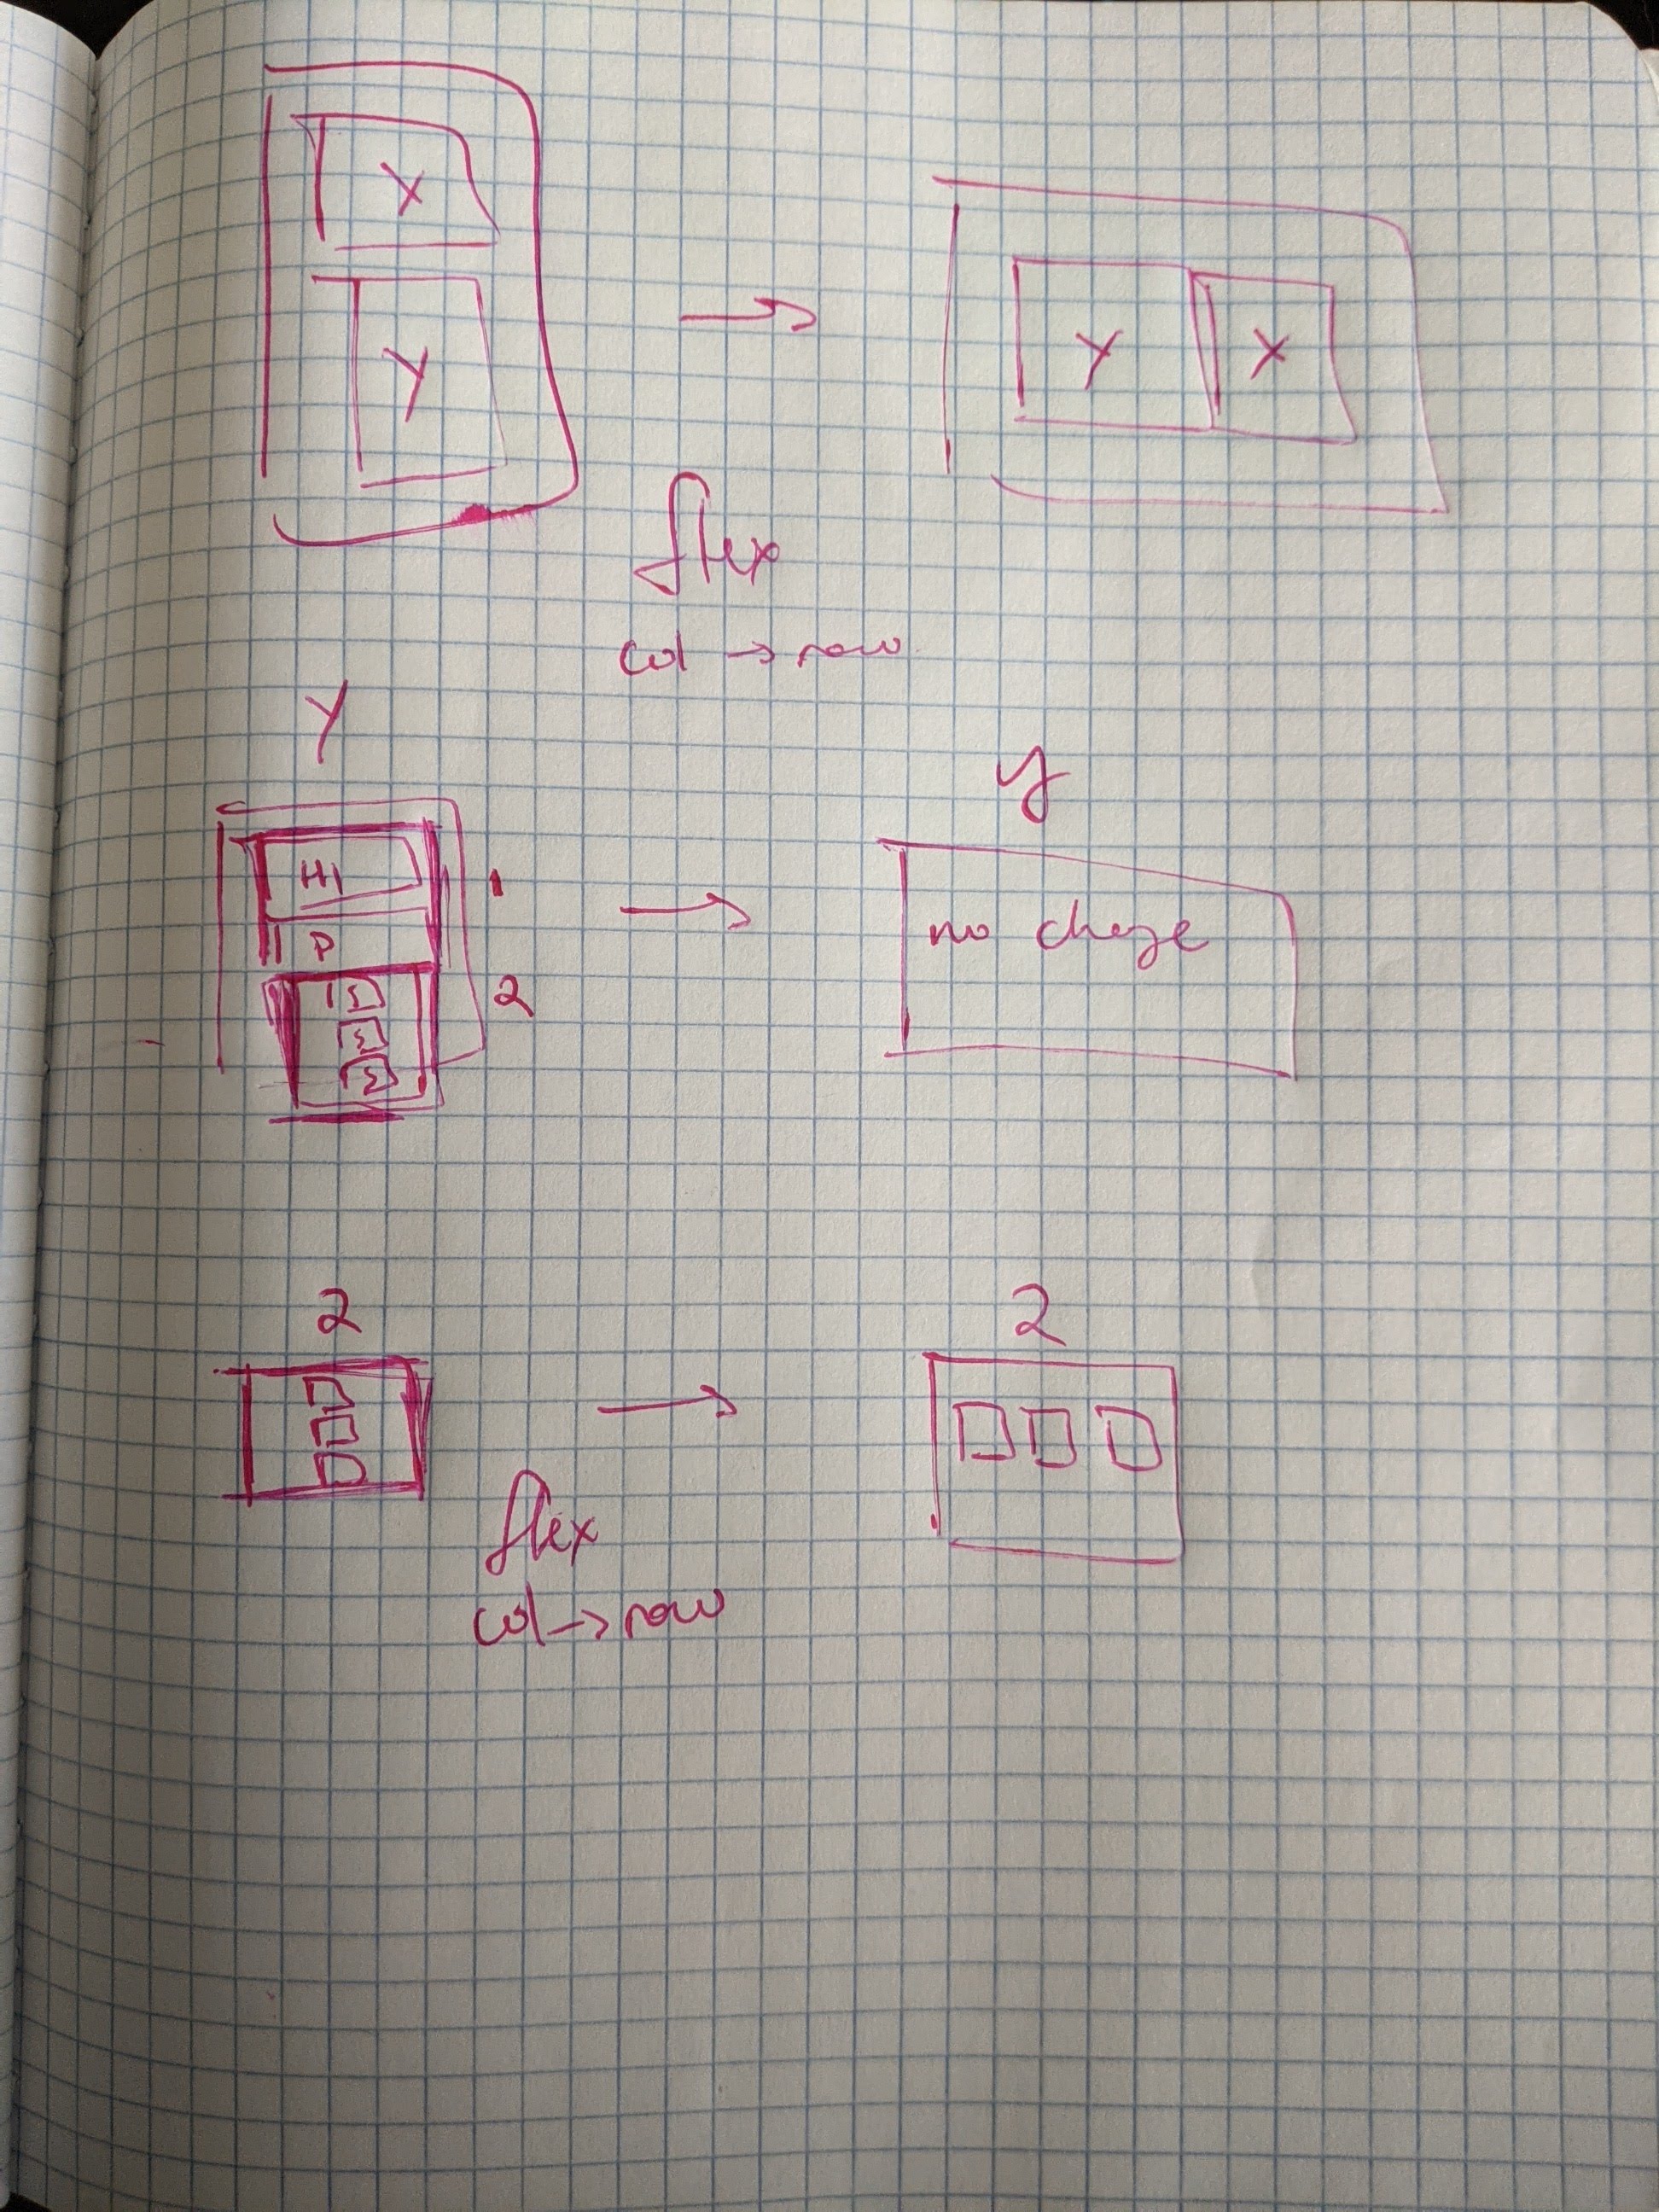 X
Y
Y X
flex
col → row
Y
y
H1
1
P
2
no change
2
2
flex
col → row